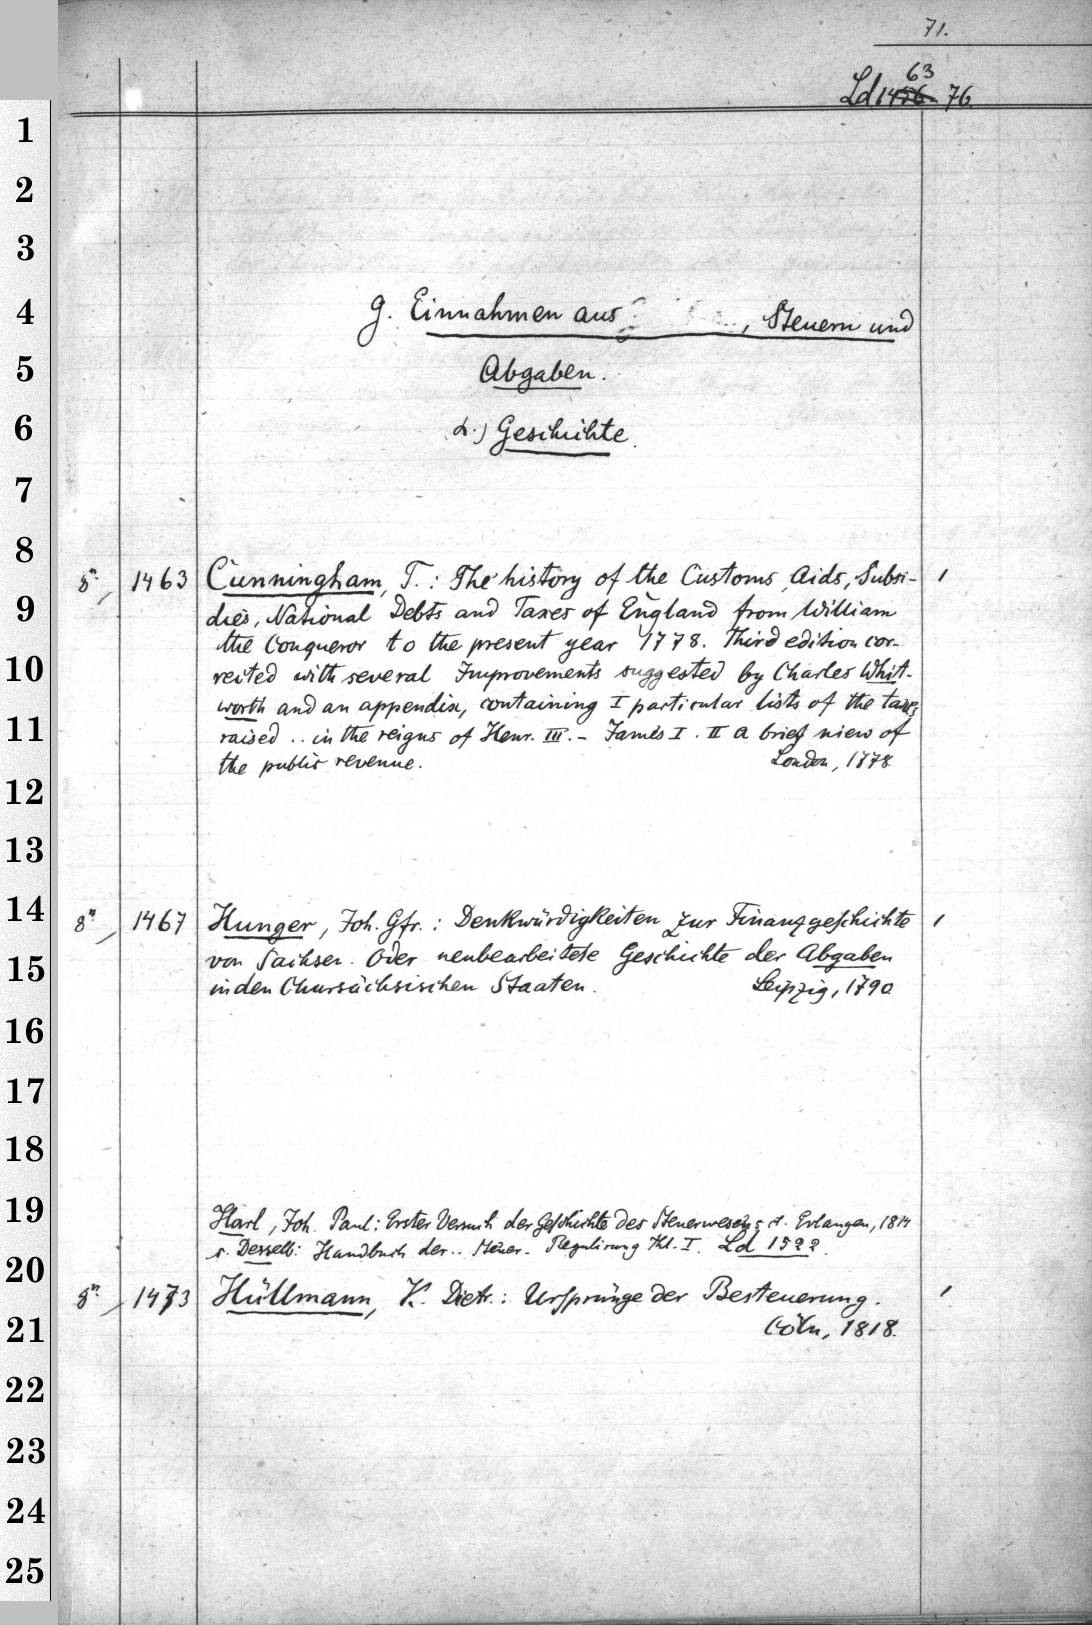 71.
63
Ld 1456-76.
g. Einnahmen aus , Steuern und
Abgaben.
α.) Geschichte.
8° 1463 Cunningham, T.: The history of the Customs, Aids, Subsi- 1
dies, National Debts and Taxes of England from William
the Conqueror to the present year 1778. Third edition cor-
rected with several Improvements suggested by Charles Whit-
worth and an appendix, containing I particular lists of the taxes
raised .. in the reigns of Henr. III. - James I. II a brief view of
the public revenue. London, 1778.
8° 1467 Hunger, Joh. Gfr.: Denkwürdigkeiten zur Finanzgeschichte 1
von Sachsen. Oder neubearbeitete Geschichte der Abgaben
in den Chursächsischen Staaten. Leipzig, 1790
Harl, Joh. Paul: Erster Versuch der Geschichte des Steuerwesens Erlangen, 1814
s. Desselb: Handbuch der .. Steuer-Regulirung Thl. I. Ld 1522.
8° 1473 Hüllmann, K. Dietr.: Ursprünge der Besteuerung. 1
Cöln, 1818.
1
2
3
4
5
6
7
8
9
10
11
12
13
14
15
16
17
18
19
20
21
22
23
24
25